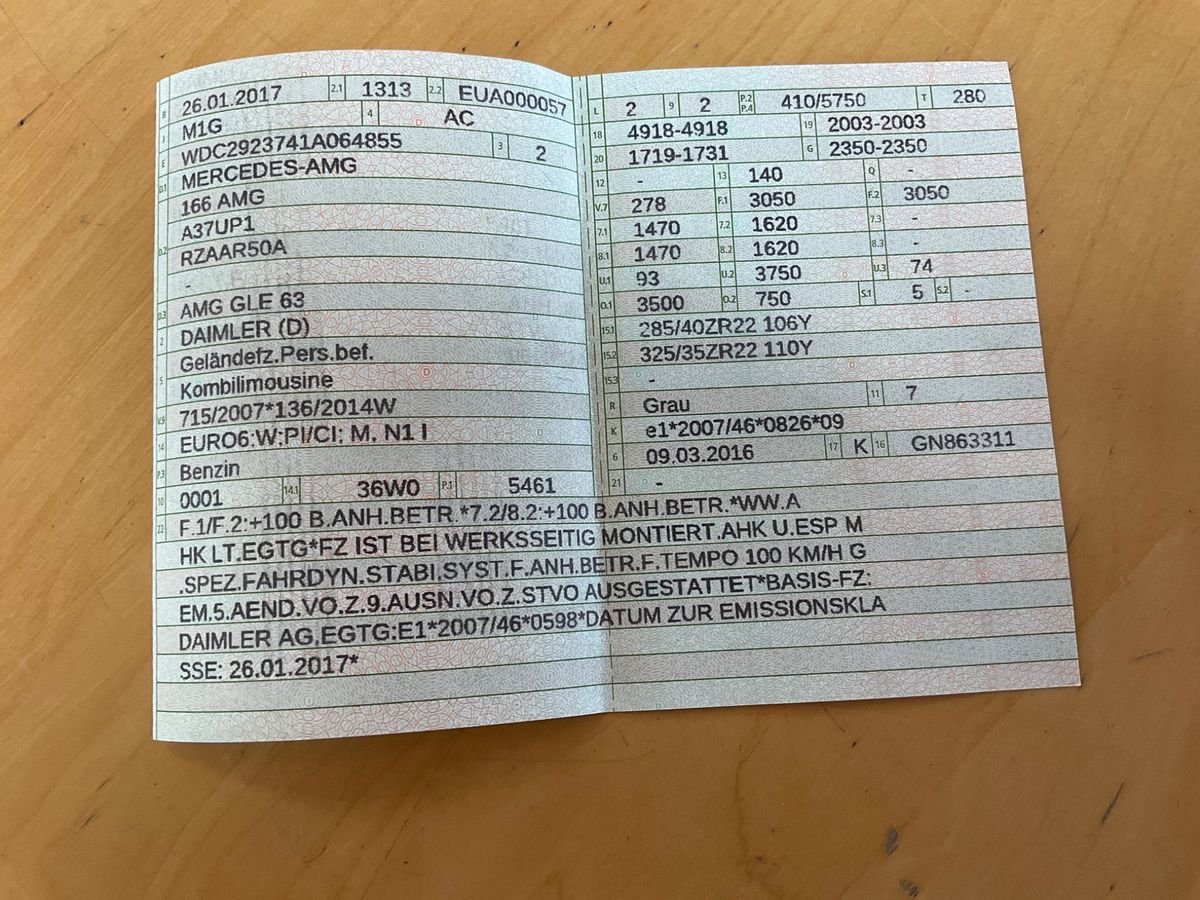 B 26.01.2017 2.1 1313 2.2 EUA000057
J M1G 4 AC
E WDC2923741A064855 3 2
D.1 MERCEDES-AMG
166 AMG
A37UP1
D.2 RZAAR50A
-
D.3 AMG GLE 63
2 DAIMLER (D)
Geländefz.Pers.bef.
5 Kombilimousine
V.9 715/2007*136/2014W
14 EURO6;W;PI/CI; M, N1 I
P.3 Benzin
10 0001 14.1 36W0 P.1 5461
L 2 9 2 P.2 P.4 410/5750 T 280
18 4918-4918 19 2003-2003
20 1719-1731 G 2350-2350
12 - 13 140 Q -
V.7 278 F.1 3050 F.2 3050
7.1 1470 7.2 1620 7.3 -
8.1 1470 8.2 1620 8.3 -
U.1 93 U.2 3750 U.3 74
O.1 3500 O.2 750 S.1 5 S.2 -
15.1 285/40ZR22 106Y
15.2 325/35ZR22 110Y
15.3 -
R Grau 11 7
K e1*2007/46*0826*09
6 09.03.2016 17 K 16 GN863311
21 -
22 F.1/F.2:+100 B.ANH.BETR.*7.2/8.2:+100 B.ANH.BETR.*WW.A
HK LT.EGTG*FZ IST BEI WERKSSEITIG MONTIERT.AHK U.ESP M
.SPEZ.FAHRDYN.STABI.SYST.F.ANH.BETR.F.TEMPO 100 KM/H G
EM.5.AEND.VO.Z.9.AUSN.VO.Z.STVO AUSGESTATTET*BASIS-FZ:
DAIMLER AG,EGTG:E1*2007/46*0598*DATUM ZUR EMISSIONSKLA
SSE: 26.01.2017*